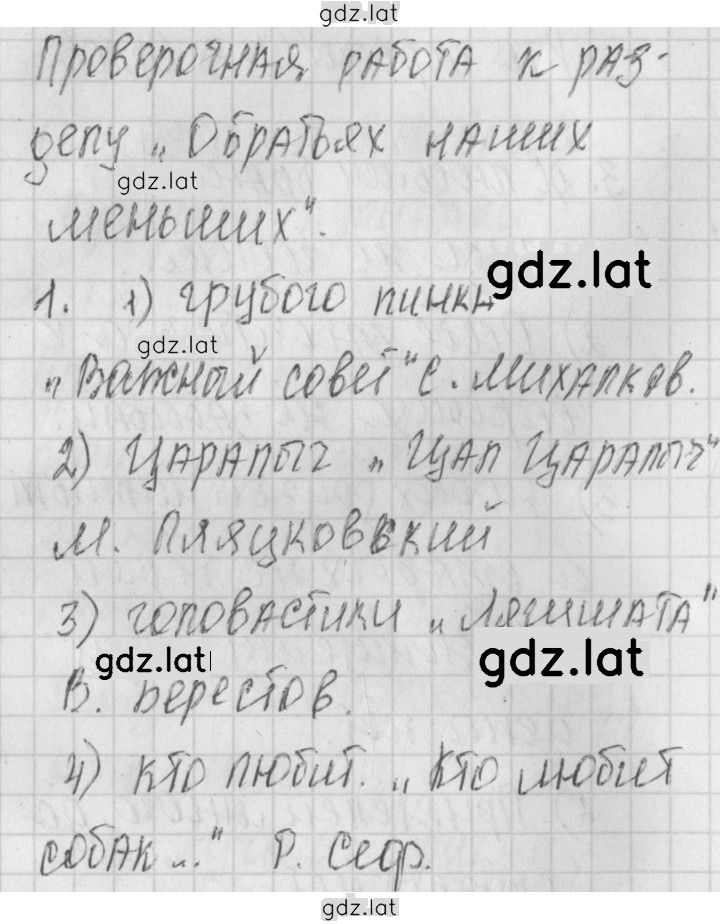 gdz.lat
Проверочная работа к раз-
делу „О братьях наших
gdz.lat
меньших".
gdz.lat
1. 1) грубого пинки
gdz.lat
„Важный совет" С. Михалков.
2) Царапыч „Цап Царапыч"
М. Пляцковский
3) головастики „Лягушата"
gdz.lat gdz.lat
В. Берестов.
4) кто любит. „Кто любит
собак..." Р. Сеф.
gdz.lat